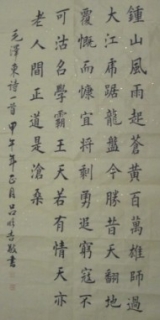 鍾山風雨起蒼黃百萬雄師過
大江虎踞龍盤今勝昔天翻地
覆慨而慷宜將剩勇追窮寇不
可沽名學霸王天若有情天亦
老人間正道是滄桑
毛澤東詩一首甲午年正月吕書